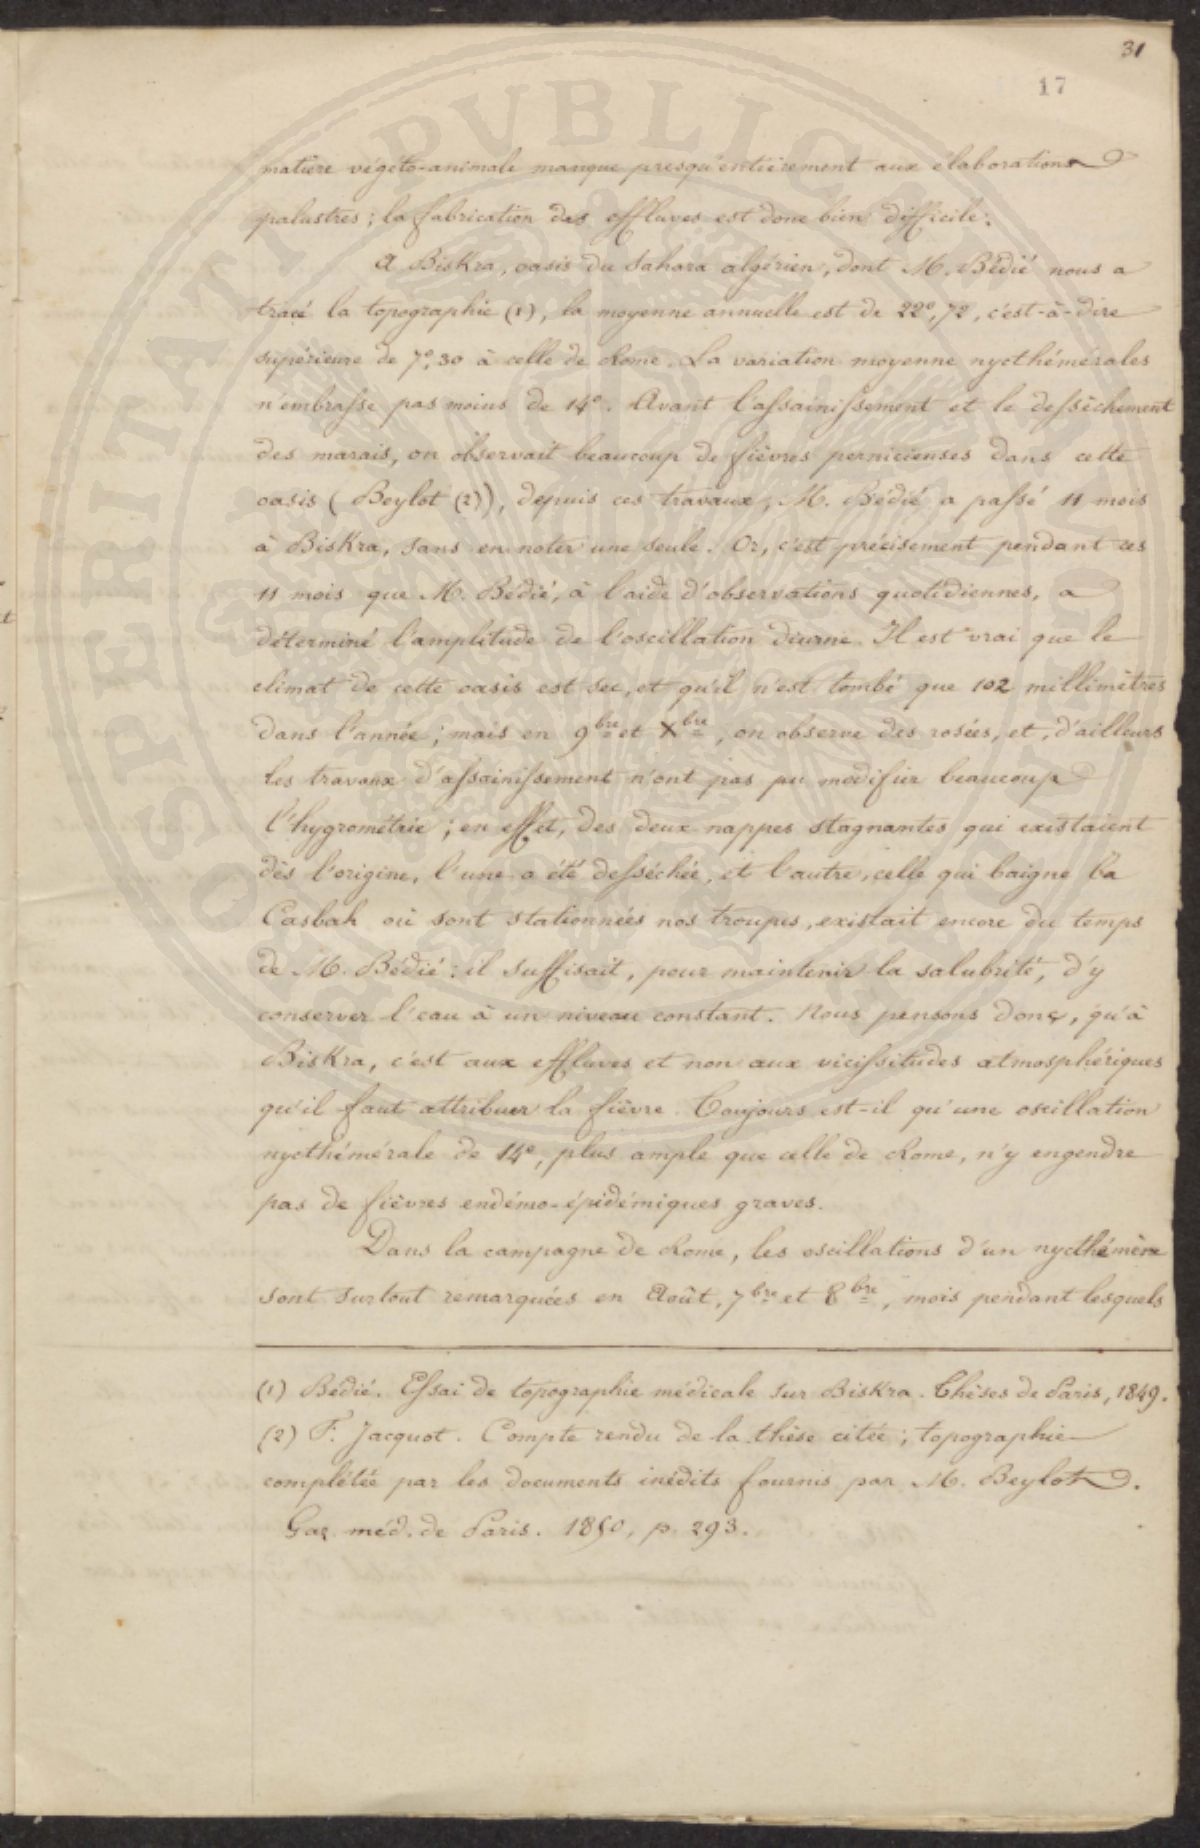 31
17
matière végéto-animale manque presqu'entièrement aux élaborations
palustres ; la fabrication des effluves est donc bien difficile.
A Biskra, oasis du Sahara algérien, dont M. Bédié nous a
tracé la topographie (1), la moyenne annuelle est de 22°,72, c'est-à-dire
supérieure de 7°,30 à celle de Rome. La variation moyenne nycthémérales
n'embrasse pas moins de 14°. Avant l'assainissement et le dessèchement
des marais, on observait beaucoup de fièvres pernicieuses dans cette
oasis (Beylot (2)), depuis ces travaux, M. Bédié a passé 11 mois
à Biskra, sans en noter une seule. Or, c'est précisement pendant ces
11 mois que M. Bédié, à l'aide d'observations quotidiennes, a
déterminé l'amplitude de l'oscillation diurne. Il est vrai que le
climat de cette oasis est sec, et qu'il n'est tombé que 102 millimètres
dans l'année ; mais en 9bre et Xbre, on observe des rosées, et, d'ailleurs
les travaux d'assainissement n'ont pas pu modifier beaucoup
l'hygrométrie ; en effet, des deux nappes stagnantes qui existaient
dès l'origine, l'une a été desséchée, et l'autre, celle qui baigne la
Casbah où sont stationnées nos troupes, existait encore du temps
de M. Bédié : il suffisait, pour maintenir la salubrité, d'y
conserver l'eau à un niveau constant. Nous pensons donc, qu'à
Biskra, c'est aux effluves et non aux vicissitudes atmosphériques
qu'il faut attribuer la fièvre. Toujours est-il qu'une oscillation
nycthémérale de 14°, plus ample que celle de Rome, n'y engendre
pas de fièvres endémo-épidémiques graves.
Dans la campagne de Rome, les oscillations d'un nycthémère
sont surtout remarquées en Août, 7bre et 8bre, mois pendant lesquels
(1) Bédié. Essai de topographie médicale sur Biskra. Thèses de Paris, 1849.
(2) F. Jacquot. Compte rendu de la thèse citée ; topographie
complétée par les documents inédits fournis par M. Beylot.
Gaz. méd. de Paris. 1850, p. 293.